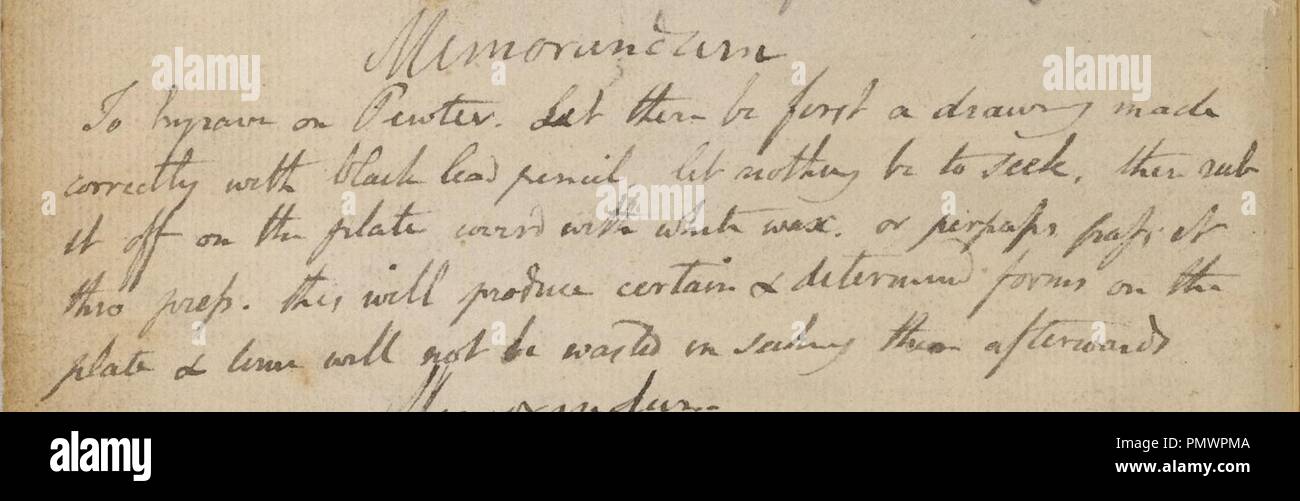 Memorandum
To Engrave on Pewter. Let there be first a drawing made
correctly with black lead pencil, let nothing be to seek, then rub
it off on the plate coverd with white wax. or perhaps pass it
thro press. this will produce certain & determind forms on the
plate & time will not be wasted in seeking them afterwards
Memorandum
alamy
alamy
alamy
a
a
a
a
a
a
alamy
Image ID: PMWPMA
www.alamy.com